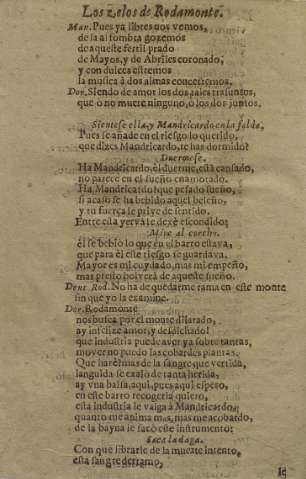 Los zelos de Rodamonte.
Man. Pues ya libres nos vemos,
de la alfombra gozemos
de aqueste fertil prado
de Mayos, y de Abriles coronado,
y con dulces estremos
la musica a dos almas concertemos.
Dor. Siendo de amor los dos jales trasuntos,
que o no muere ninguno, o los dos juntos.
Sientese ella, y Mandricardo en la falda,
Pues se añade en el riesgo lo querido,
que dizes Mandricardo, te has dormido?
Duermese.
Ha Mandricardo, él duerme, està cansado,
no parece en el sueño enamorado.
Ha Mandricardo! que pesado sueño,
si acaso se ha bebido aquel beleño,
y su fuerça le prive de sentido.
Entre esta yerva le dexè escondido;
Mire al corcho.
él se bebio lo que en el barro estava,
que para él este riesgo se guardava,
Mayor es mi cuydado, mas mi empeño,
mas presto bolverà de aqueste sueño.
Dent. Rod. No ha de quedarme rama en este monte
sin que yo la examine.
Dor. Rodamonte
nos busca por el monte dilatado,
ay infelize amor, y desdichado!
que industria puede aver ya sobre tantas,
mover no puedo las cobardes plantas.
Que harè? mas de la sangre que vertida,
languida se exalò de tanta herida,
ay vna balsa, aqui, pues aqui espero,
en este barro recogerla quiero,
esta industria le valga à Mandricardo,
quanto me anima mas, mas me acobardo,
de la bayna le sacò este instrumento:
Saca la daga.
Con que librarle de la muerte intento,
esta sangre derramo,
le